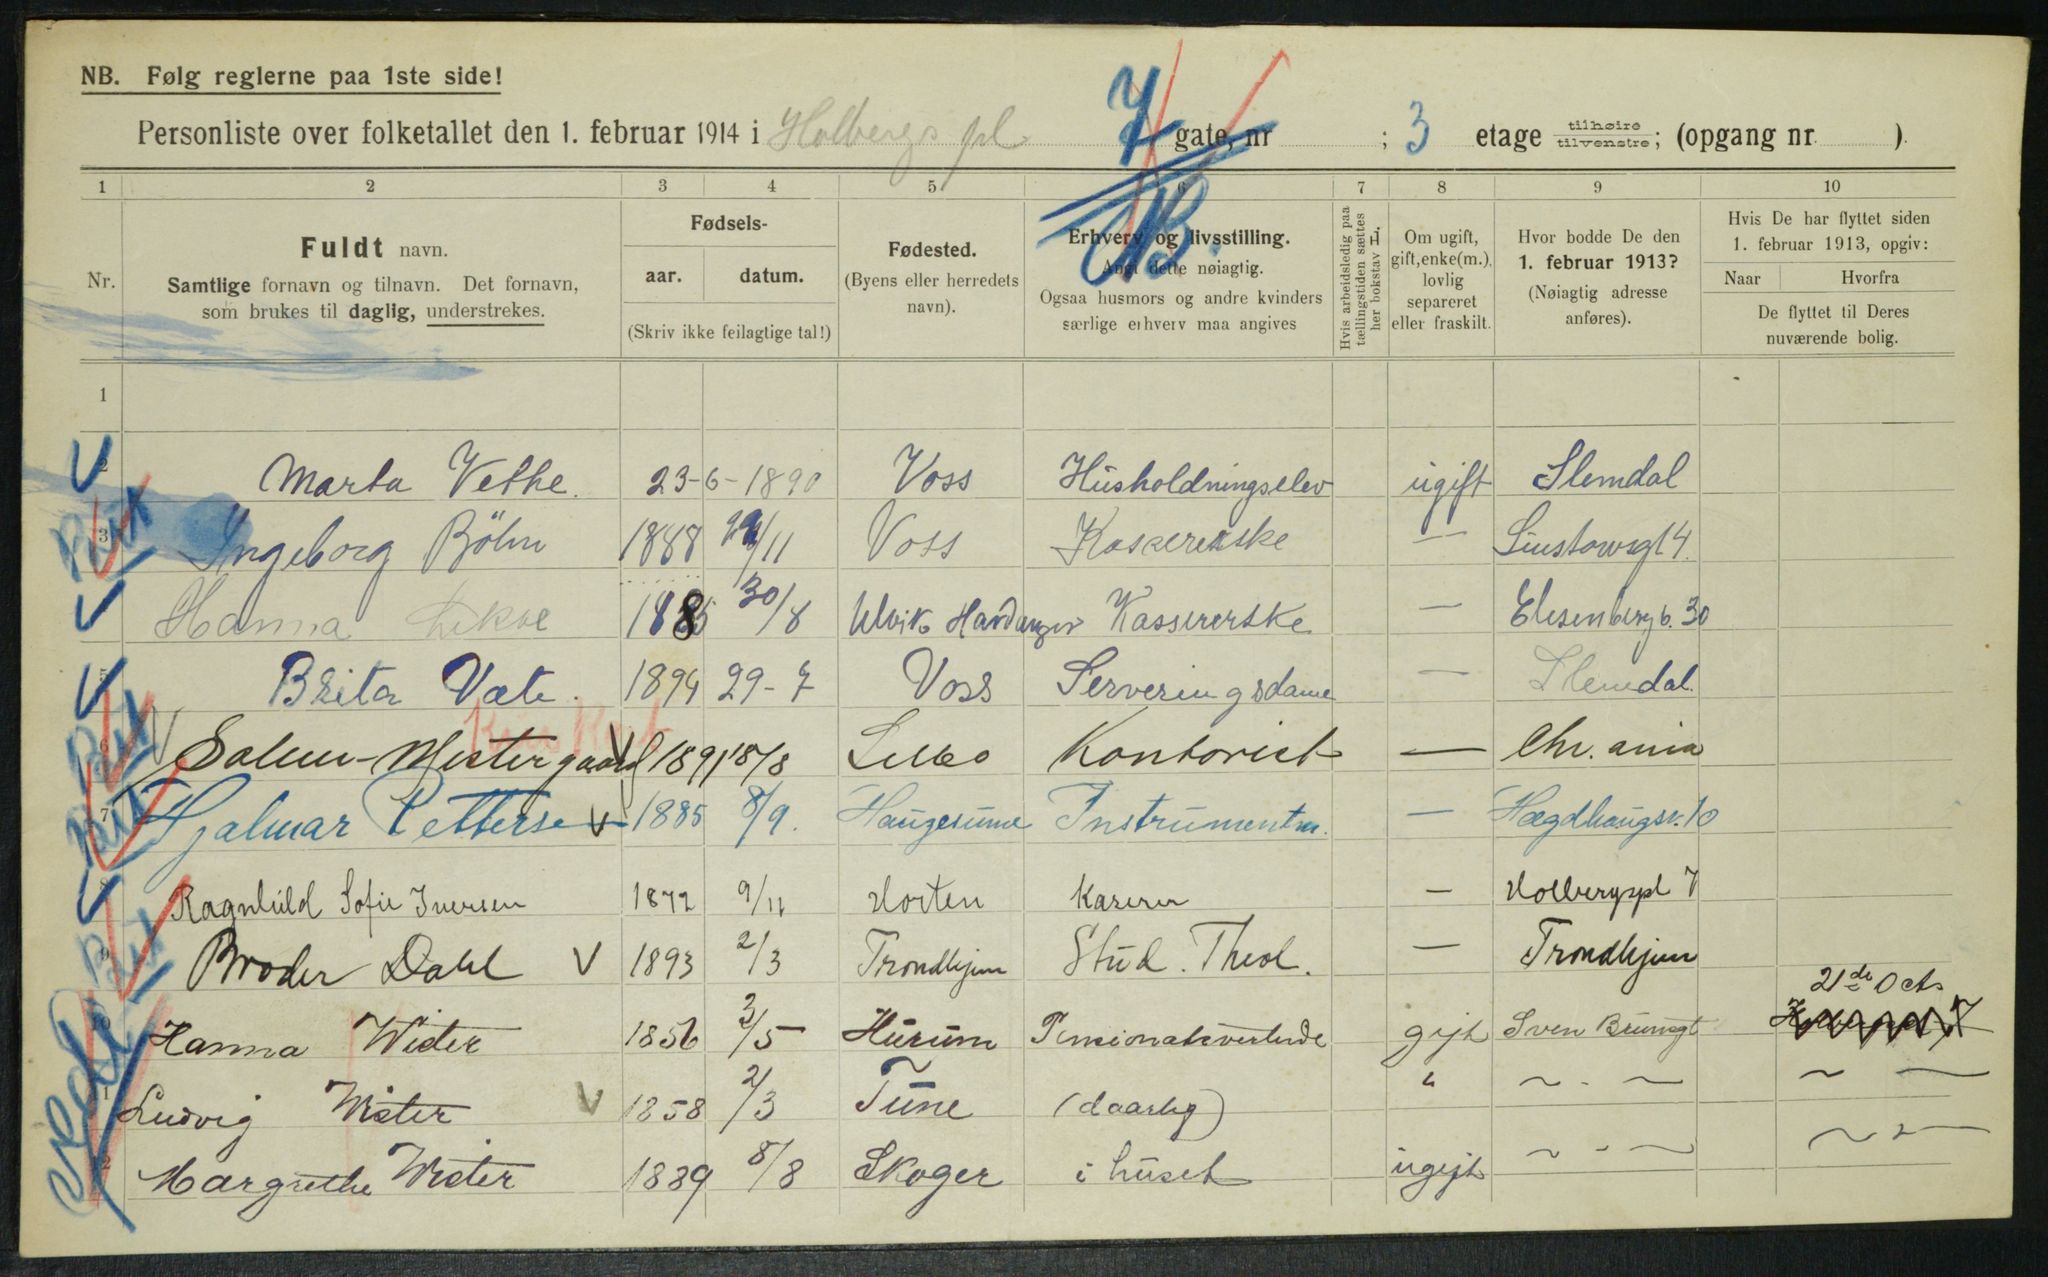 NB. Følg reglerne paa 1ste side!
Personliste over folketallet den 1. februar 1914 i Holbergs pl 7 gate, nr ; 3 etage tilhøire tilvenstre; (opgang nr. ).
NB.
1 2 3 4 5 6 7 8 9 10
Nr.
Fuldt navn.
Samtlige fornavn og tilnavn. Det fornavn,
som brukes til daglig, understrekes.
Fødsels-
aar. datum.
(Skriv ikke feilagtige tal!)
Fødested.
(Byens eller herredets
navn).
Erhverv og livsstilling.
Angi dette nøiagtig.
Ogsaa husmors og andre kvinders
særlige erhverv maa angives
Hvis arbeidsledig paa
tællingstiden sættes
her bokstav L.
Om ugift,
gift, enke(m.),
lovlig
separeret
eller fraskilt.
Hvor bodde De den
1. februar 1913?
(Nøiagtig adresse
anføres).
Hvis De har flyttet siden
1. februar 1913, opgiv:
Naar Hvorfra
De flyttet til Deres
nuværende bolig.
1
2 Marta Vethe. 23-6-1890 Voss Husholdningselev ugift Slemdal
3 Ingeborg Böhn 1888 /11 Voss Kassererske — 
Hanna 1885 30/8 Ulvik Hardanger Kassererske — Elisenberg v. 30
5 Brita Væte. 1894 29-7 Voss Serveringsdame — Slemdal.
6 1891 18/8 Kontorist — Chr. ania
7 Hjalmar Pettersen V 1885 8/9. Haugesund Instrumentm. — Hægdhaugsv. 10
8 Ragnhild Sofie Iversen 1872 9/11 Horten Kaserer — Holbergspl 7
9 Broder Dahl V 1893 2/3 Trondhjem Stud. Theol. — Trondhjem
21de Octs
10 Hanna Wister 1856 3/5 Hurum Pensionatsvertinde gift Sven Brunsgt
11 Ludvig Wister V 1858 2/3 Tune (daarlig) " ~ - ~ ~ —
12 Margrethe Wister 1889 8/8 Skoger i huset ugift ~ - ~ ~ —